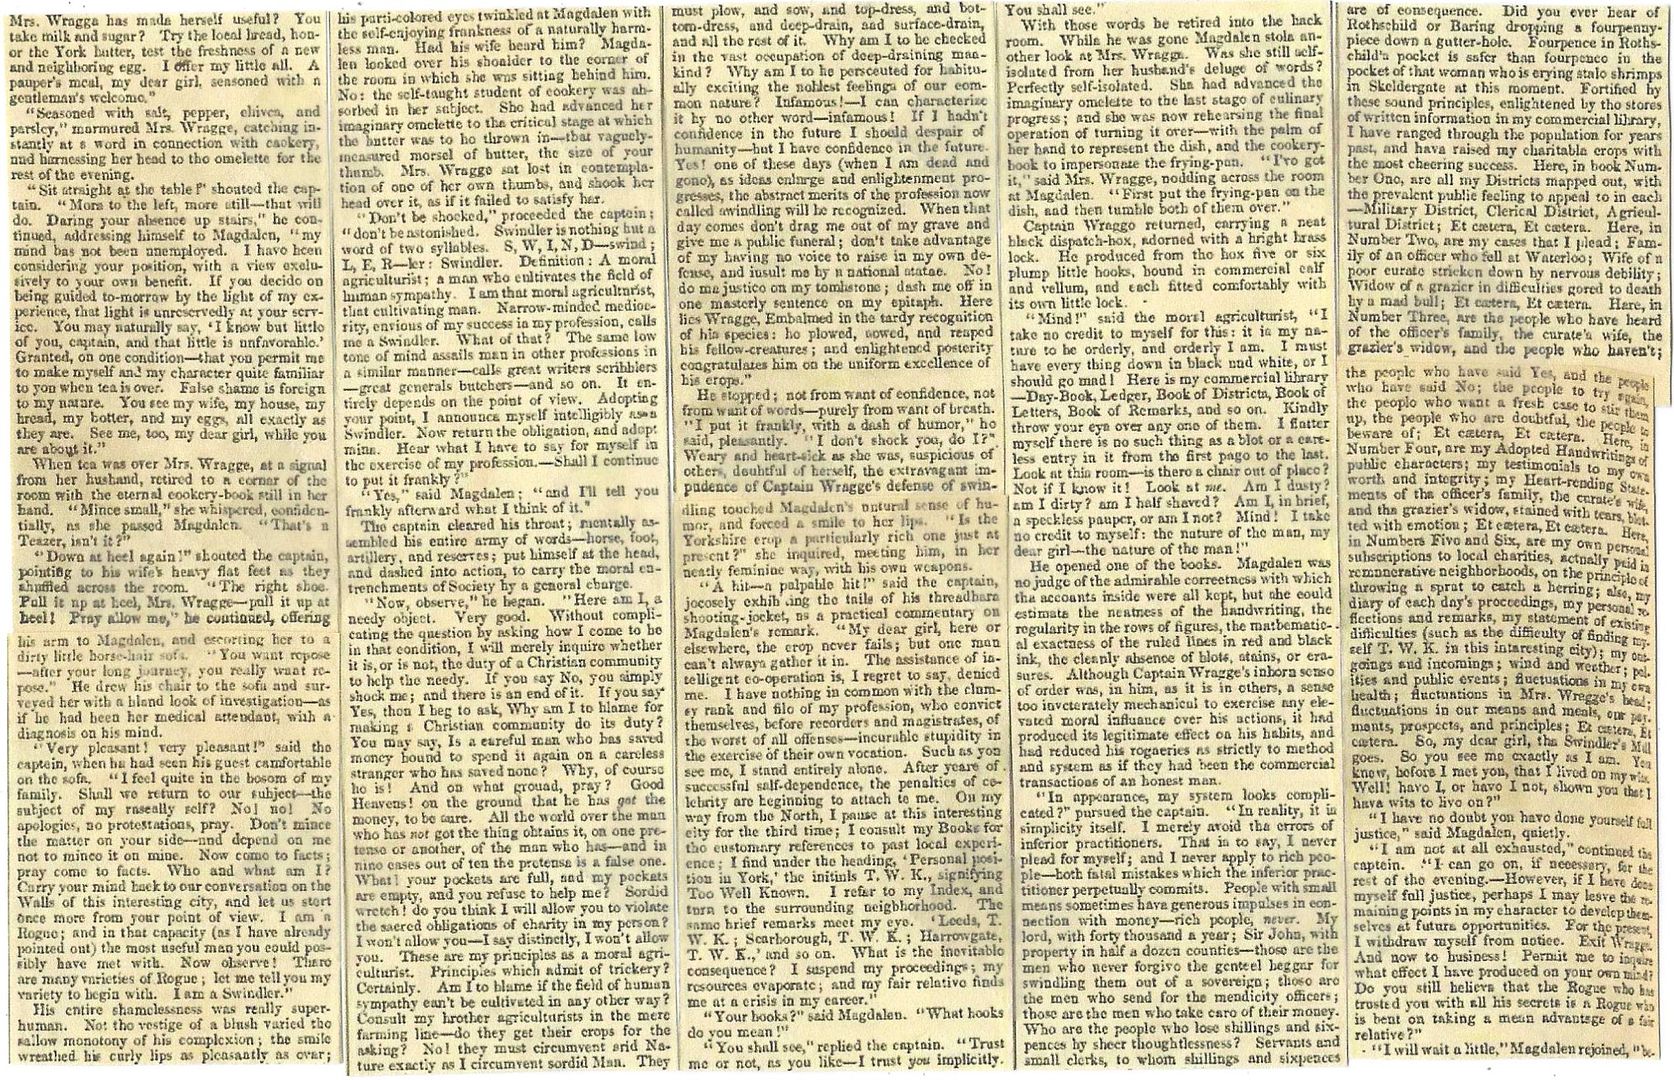 Mrs. Wragge has made herself useful? You
take milk and sugar? Try the local bread, hon-
or the York butter, test the freshness of a new
and neighboring egg. I offer my little all. A
pauper's meal, my dear girl, seasoned with a
gentleman's welcome."
"Seasoned with salt, pepper, chives, and
parsley," murmured Mrs. Wragge, catching in-
stantly at a word in connection with cookery,
and harnessing her head to the omelette for the
rest of the evening.
"Sit straight at the table!" shouted the cap-
tain. "More to the left, more still—that will
do. During your absence up stairs," he con-
tinued, addressing himself to Magdalen, "my
mind has not been unemployed. I have been
considering your position, with a view exclu-
sively to your own benefit. If you decide on
being guided to-morrow by the light of my ex-
perience, that light is unreservedly at your serv-
ice. You may naturally say, 'I know but little
of you, captain, and that little is unfavorable.'
Granted, on one condition—that you permit me
to make myself and my character quite familiar
to you when tea is over. False shame is foreign
to my nature. You see my wife, my house, my
bread, my butter, and my eggs, all exactly as
they are. See me, too, my dear girl, while you
are about it."
When tea was over Mrs. Wragge, at a signal
from her husband, retired to a corner of the
room with the eternal cookery-book still in her
hand. "Mince small," she whispered, confiden-
tially, as she passed Magdalen. "That's a
Teazer, isn't it?"
"Down at heel again!" shouted the captain,
pointing to his wife's heavy flat feet as they
shuffled across the room. "The right shoe.
Pull it up at heel, Mrs. Wragge—pull it up at
heel! Pray allow me," he continued, offering
his arm to Magdalen, and escorting her to a
dirty little horse-hair sofa. "You want repose
—after your long journey, you really want re-
pose." He drew his chair to the sofa and sur-
veyed her with a bland look of investigation—as
if he had been her medical attendant, with a
diagnosis on his mind.
"Very pleasant! very pleasant!" said the
captain, when he had seen his guest comfortable
on the sofa. "I feel quite in the bosom of my
family. Shall we return to our subject—the
subject of my rascally self? No! no! No
apologies, no protestations, pray. Don't mince
the matter on your side—and depend on me
not to mince it on mine. Now come to facts;
pray come to facts. Who and what am I?
Carry your mind back to our conversation on the
Walls of this interesting city, and let us start
once more from your point of view. I am a
Rogue; and in that capacity (as I have already
pointed out) the most useful man you could pos-
sibly have met with. Now observe! There
are many varieties of Rogue; let me tell you my
variety to begin with. I am a Swindler."
His entire shamelessness was really super-
human. Not the vestige of a blush varied the
sallow monotony of his complexion; the smile
wreathed his curly lips as pleasantly as ever;
his parti-colored eyes twinkled at Magdalen with
the self-enjoying frankness of a naturally harm-
less man. Had his wife heard him? Magda-
len looked over his shoulder to the corner of
the room in which she was sitting behind him.
No: the self-taught student of cookery was ab-
sorbed in her subject. She had advanced her
imaginary omelette to the critical stage at which
the butter was to be thrown in—that vaguely-
measured morsel of butter, the size of your
thumb. Mrs. Wragge sat lost in contempla-
tion of one of her own thumbs, and shook her
head over it, as if it failed to satisfy her.
"Don't be shocked," proceeded the captain;
"don't be astonished. Swindler is nothing but a
word of two syllables. S, W, I, N, D—swind;
L, E, R—ler: Swindler. Definition: A moral
agriculturist; a man who cultivates the field of
human sympathy. I am that moral agriculturist,
that cultivating man. Narrow-minded medioc-
rity, envious of my success in my profession, calls
me a Swindler. What of that? The same low
tone of mind assails man in other professions in
a similar manner—calls great writers scribblers
—great generals butchers—and so on. It en-
tirely depends on the point of view. Adopting
your point, I announce myself intelligibly as a
Swindler. Now return the obligation, and adopt
mine. Hear what I have to say for myself in
the exercise of my profession.—Shall I continue
to put it frankly?"
"Yes," said Magdalen; "and I'll tell you
frankly afterward what I think of it."
The captain cleared his throat; mentally as-
sembled his entire army of words—horse, foot,
artillery, and reserves; put himself at the head,
and dashed into action, to carry the moral en-
trenchments of Society by a general charge.
"Now, observe," he began. "Here am I, a
needy object. Very good. Without compli-
cating the question by asking how I come to be
in that condition, I will merely inquire whether
it is, or is not, the duty of a Christian community
to help the needy. If you say No, you simply
shock me; and there is an end of it. If you say
Yes, then I beg to ask, Why am I to blame for
making a Christian community do its duty?
You may say, Is a careful man who has saved
money bound to spend it again on a careless
stranger who has saved none? Why, of course
he is! And on what ground, pray? Good
Heavens! on the ground that he has got the
money, to be sure. All the world over the man
who has not got the thing obtains it, on one pre-
tense or another, of the man who has—and in
nine cases out of ten the pretense is a false one.
What! your pockets are full, and my pockets
are empty, and you refuse to help me? Sordid
wretch! do you think I will allow you to violate
the sacred obligations of charity in my person?
I won't allow you—I say distinctly, I won't allow
you. These are my principles as a moral agri-
culturist. Principles which admit of trickery?
Certainly. Am I to blame if the field of human
sympathy can't be cultivated in any other way?
Consult my brother agriculturists in the mere
farming line—do they get their crops for the
asking? No! they must circumvent arid Na-
ture exactly as I circumvent sordid Man. They
must plow, and sow, and top-dress, and bot-
tom-dress, and deep-drain, and surface-drain,
and all the rest of it. Why am I to be checked
in the vast occupation of deep-draining man-
kind? Why am I to be persecuted for habitu-
ally exciting the noblest feelings of our com-
mon nature? Infamous!—I can characterize
it by no other word—infamous! If I hadn't
confidence in the future I should despair of
humanity—but I have confidence in the future.
Yes! one of these days (when I am dead and
gone), as ideas enlarge and enlightenment pro-
gresses, the abstract merits of the profession now
called swindling will be recognized. When that
day comes don't drag me out of my grave and
give me a public funeral; don't take advantage
of my having no voice to raise in my own de-
fense, and insult me by a national statue. No!
do me justice on my tombstone; dash me off in
one masterly sentence on my epitaph. Here
lies Wragge, Embalmed in the tardy recognition
of his species: he plowed, sowed, and reaped
his fellow-creatures; and enlightened posterity
congratulates him on the uniform excellence of
his crops."
He stopped; not from want of confidence, not
from want of words—purely from want of breath.
"I put it frankly, with a dash of humor," he
said, pleasantly. "I don't shock you, do I?"
Weary and heart-sick as she was, suspicious of
others, doubtful of herself, the extravagant im-
pudence of Captain Wragge's defense of swin-
dling touched Magdalen's natural sense of hu-
mor, and forced a smile to her lips. "Is the
Yorkshire crop a particularly rich one just at
present?" she inquired, meeting him, in her
neatly feminine way, with his own weapons.
"A hit—a palpable hit!" said the captain,
jocosely exhibiting the tails of his threadbare
shooting-jacket, as a practical commentary on
Magdalen's remark. "My dear girl, here or
elsewhere, the crop never fails; but one man
can't always gather it in. The assistance of in-
telligent co-operation is, I regret to say, denied
me. I have nothing in common with the clum-
sy rank and file of my profession, who convict
themselves, before recorders and magistrates, of
the worst of all offenses—incurable stupidity in
the exercise of their own vocation. Such as you
see me, I stand entirely alone. After years of
successful self-dependence, the penalties of ce-
lebrity are beginning to attach to me. On my
way from the North, I pause at this interesting
city for the third time; I consult my Books for
the customary references to past local experi-
ence; I find under the heading, 'Personal posi-
tion in York,' the initials T. W. K., signifying
Too Well Known. I refer to my Index, and
turn to the surrounding neighborhood. The
same brief remarks meet my eye. 'Leeds, T.
W. K.; Scarborough, T. W. K.; Harrowgate,
T. W. K.,' and so on. What is the inevitable
consequence? I suspend my proceedings; my
resources evaporate; and my fair relative finds
me at a crisis in my career."
"Your books?" said Magdalen. "What books
do you mean!"
"You shall see," replied the captain. "Trust
me or not, as you like—I trust you implicitly.
You shall see."
With those words he retired into the back
room. While he was gone Magdalen stole an-
other look at Mrs. Wragge. Was she still self-
isolated from her husband's deluge of words?
Perfectly self-isolated. She had advanced the
imaginary omelette to the last stage of culinary
progress; and she was now rehearsing the final
operation of turning it over—with the palm of
her hand to represent the dish, and the cookery-
book to impersonate the frying-pan. "I've got
it," said Mrs. Wragge, nodding across the room
at Magdalen. "First put the frying-pan on the
dish, and then tumble both of them over."
Captain Wragge returned, carrying a neat
black dispatch-box, adorned with a bright brass
lock. He produced from the box five or six
plump little books, bound in commercial calf
and vellum, and each fitted comfortably with
its own little lock.
"Mind!" said the moral agriculturist, "I
take no credit to myself for this: it is my na-
ture to be orderly, and orderly I am. I must
have every thing down in black and white, or I
should go mad! Here is my commercial library
—Day-Book, Ledger, Book of Districts, Book of
Letters, Book of Remarks, and so on. Kindly
throw your eye over any one of them. I flatter
myself there is no such thing as a blot or a care-
less entry in it from the first page to the last.
Look at this room—is there a chair out of place?
Not if I know it! Look at me. Am I dusty?
am I dirty? am I half shaved? Am I, in brief,
a speckless pauper, or am I not? Mind! I take
no credit to myself: the nature of the man, my
dear girl—the nature of the man!"
He opened one of the books. Magdalen was
no judge of the admirable correctness with which
the accounts inside were all kept, but she could
estimate the neatness of the handwriting, the
regularity in the rows of figures, the mathematic-
al exactness of the ruled lines in red and black
ink, the cleanly absence of blots, stains, or era-
sures. Although Captain Wragge's inborn sense
of order was, in him, as it is in others, a sense
too inveterately mechanical to exercise any ele-
vated moral influence over his actions, it had
produced its legitimate effect on his habits, and
had reduced his rogueries as strictly to method
and system as if they had been the commercial
transactions of an honest man.
"In appearance, my system looks compli-
cated?" pursued the captain. "In reality, it is
simplicity itself. I merely avoid the errors of
inferior practitioners. That is to say, I never
plead for myself; and I never apply to rich peo-
ple—both fatal mistakes which the inferior prac-
titioner perpetually commits. People with small
means sometimes have generous impulses in con-
nection with money—rich people, never. My
lord, with forty thousand a year; Sir John, with
property in half a dozen counties—those are the
men who never forgive the genteel beggar for
swindling them out of a sovereign; those are
the men who send for the mendicity officers;
those are the men who take care of their money.
Who are the people who lose shillings and six-
pences by sheer thoughtlessness? Servants and
small clerks, to whom shillings and sixpences
are of consequence. Did you ever hear of
Rothschild or Baring dropping a fourpenny-
piece down a gutter-hole. Fourpence in Roths-
child's pocket is safer than fourpence in the
pocket of that woman who is crying stale shrimps
in Skeldergate at this moment. Fortified by
these sound principles, enlightened by the stores
of written information in my commercial library,
I have ranged through the population for years
past, and have raised my charitable crops with
the most cheering success. Here, in book Num-
ber One, are all my Districts mapped out, with
the prevalent public feeling to appeal to in each
—Military District, Clerical District, Agricul-
tural District; Et cætera, Et cætera. Here, in
Number Two, are my cases that I plead; Fam-
ily of an officer who fell at Waterloo; Wife of a
poor curate stricken down by nervous debility;
Widow of a grazier in difficulties gored to death
by a mad bull; Et cætera, Et cætera. Here, in
Number Three, are the people who have heard
of the officer's family, the curate's wife, the
grazier's widow, and the people who haven't;
the people who have said Yes, and the people
who have said No; the people to try again,
the people who want a fresh case to stir them
up, the people who are doubtful, the people to
beware of; Et cætera, Et cætera. Here, in
Number Four, are my Adopted Handwritings of
public characters; my testimonials to my own
worth and integrity; my Heart-rending State-
ments of the officer's family, the curate's wife,
and the grazier's widow, stained with tears, blot-
ted with emotion; Et cætera, Et cætera. Here,
in Numbers Five and Six, are my own personal
subscriptions to local charities, actually paid in
remunerative neighborhoods, on the principle of
throwing a sprat to catch a herring; also, my
diary of each day's proceedings, my personal re-
flections and remarks, my statement of existing
difficulties (such as the difficulty of finding my-
self T. W. K. in this interesting city); my out-
goings and incomings; wind and weather; pol-
itics and public events; fluctuations in my own
health; fluctuations in Mrs. Wragge's head;
fluctuations in our means and meals, our pay-
ments, prospects, and principles; Et cætera, Et
cætera. So, my dear girl, the Swindler's Mill
goes. So you see me exactly as I am. You
know, before I met you, that I lived on my wits.
Well! have I, or have I not, shown you that I
have wits to live on?"
"I have no doubt you have done yourself full
justice," said Magdalen, quietly.
"I am not at all exhausted," continued the
captain. "I can go on, if necessary, for the
rest of the evening.—However, if I have done
myself full justice, perhaps I may leave the re-
maining points in my character to develop them-
selves at future opportunities. For the present,
I withdraw myself from notice. Exit Wragge.
And now to business! Permit me to inquire
what effect I have produced on your own mind?
Do you still believe that the Rogue who has
trusted you with all his secrets is a Rogue who
is bent on taking a mean advantage of a fair
relative?"
"I will wait a little," Magdalen rejoined, "be-